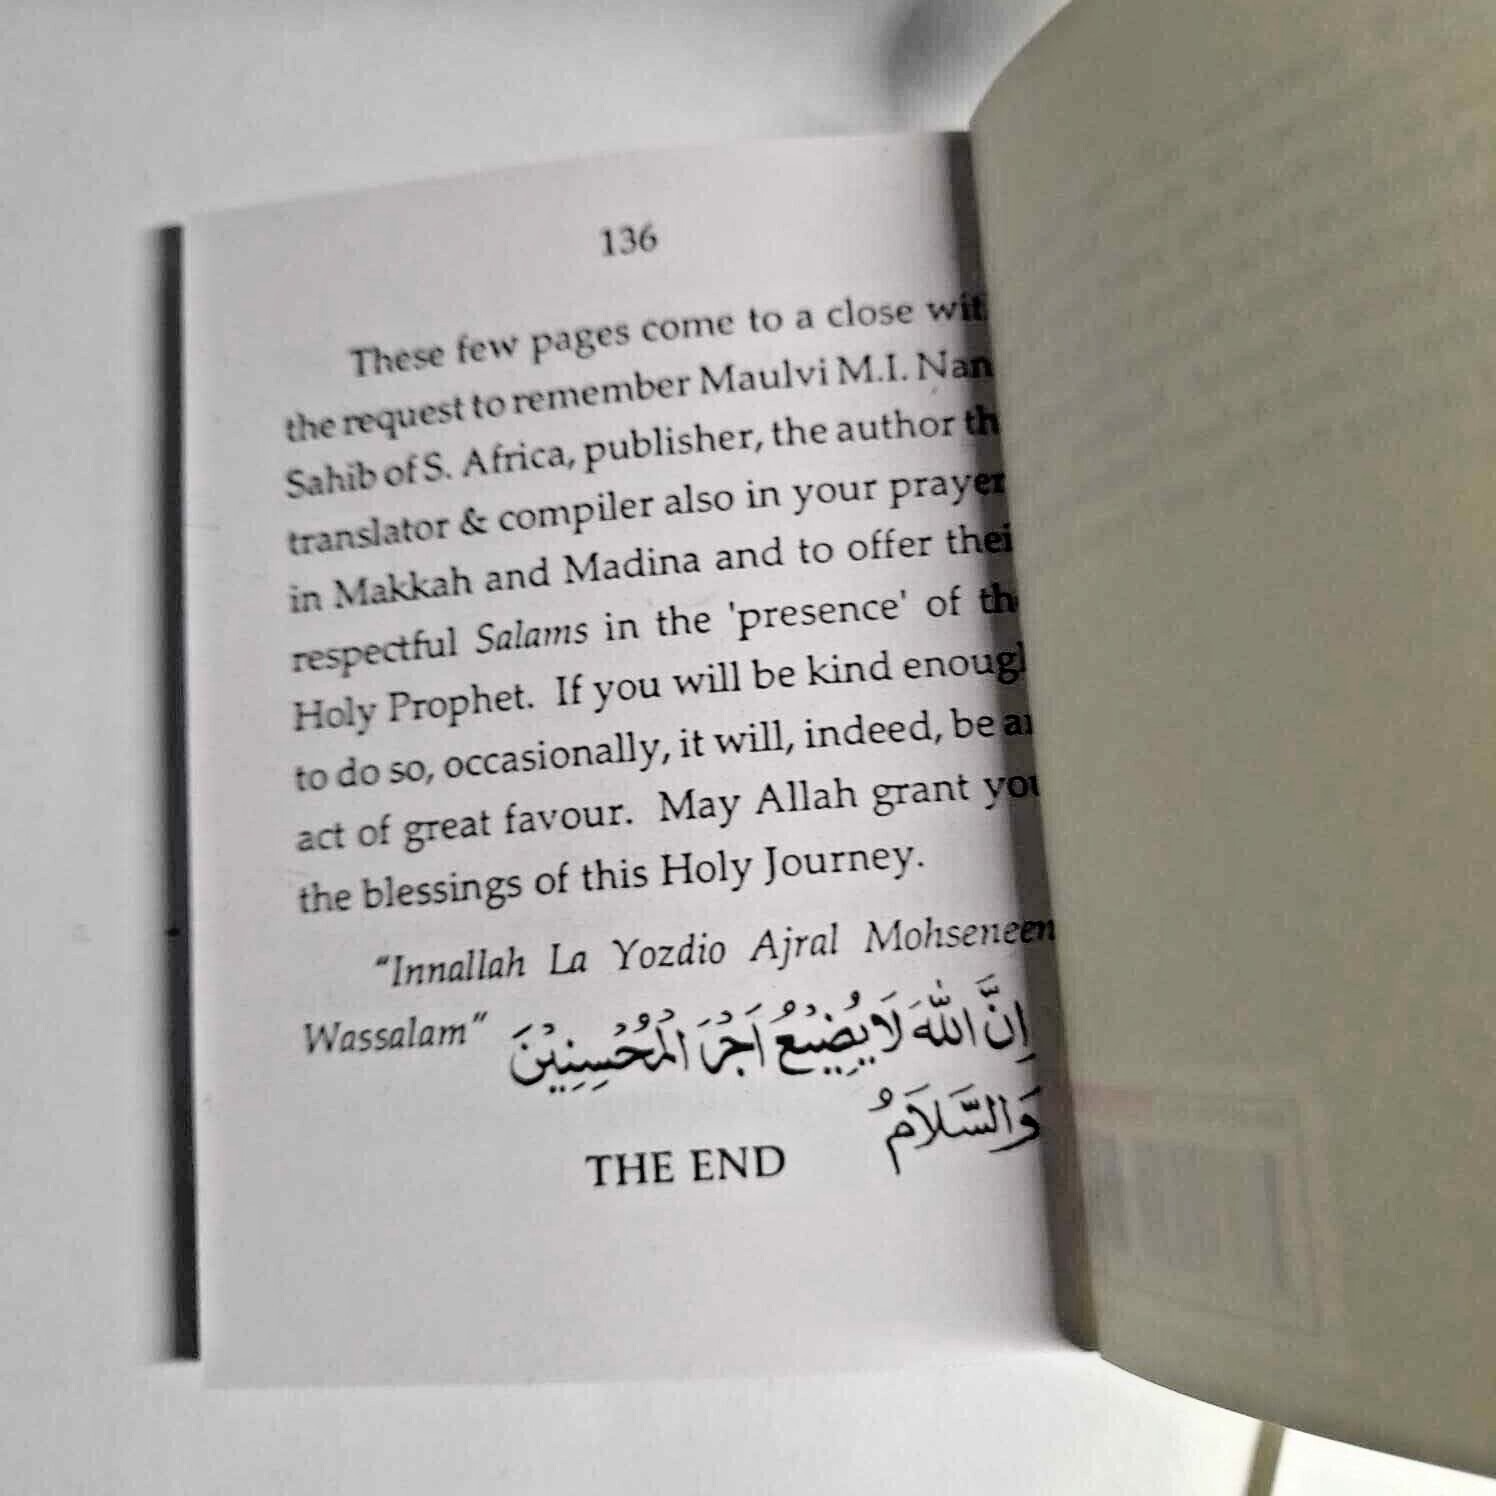 136
These few pages come to a close wit
the request to remember Maulvi M.I. Nan
Sahib of S. Africa, publisher, the author th
translator & compiler also in your prayer
in Makkah and Madina and to offer thei
respectful Salams in the 'presence' of th
Holy Prophet. If you will be kind enough
to do so, occasionally, it will, indeed, be an
act of great favour. May Allah grant you
the blessings of this Holy Journey.
“Innallah La Yozdio Ajral Mohseneen
Wassalam” اِنَّ اللّٰهَ لَا يُضِيْعُ اَجْرَ الْمُحْسِنِيْنَ
وَالسَّلَامُ
THE END